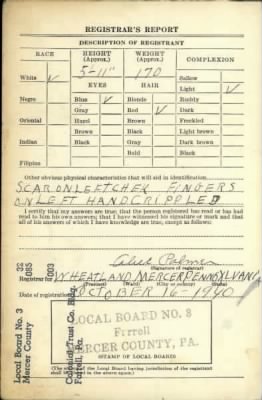 REGISTRAR'S REPORT
DESCRIPTION OF REGISTRANT
RACE HEIGHT (Approx.) WEIGHT (Approx.) COMPLEXION
5-11" 170
White ✓ Sallow
EYES HAIR Light ✓
Negro Blue ✓ Blonde Ruddy
Gray Red ✓ Dark
Oriental Hazel Brown Freckled
Brown Black Light brown
Indian Black Gray Dark brown
Bald Black
Filipino
Other obvious physical characteristics that will aid in identification
SCAR ON LEFT CHEK FINGERS
ON LEFT HAND CRIPPLED
I certify that my answers are true; that the person registered has read or has had
read to him his own answers; that I have witnessed his signature or mark and that
all of his answers of which I have knowledge are true, except as follows:
(Signature of registrar)
Registrar for 003 WHEATLAND MERCER PENNSYLVANIA
(Precinct) (Ward) (City or county) (State)
Date of registration OCTOBER 16-1940
LOCAL BOARD NO. 3
Farrell
MERCER COUNTY, PA.
(STAMP OF LOCAL BOARD)
(The stamp of the Local Board having jurisdiction of the registrant
shall be placed in the above space.)
Local Board No. 3 32
Mercer County 085
003
Colonial Trust Co. Bldg.
Farrell, Pa.